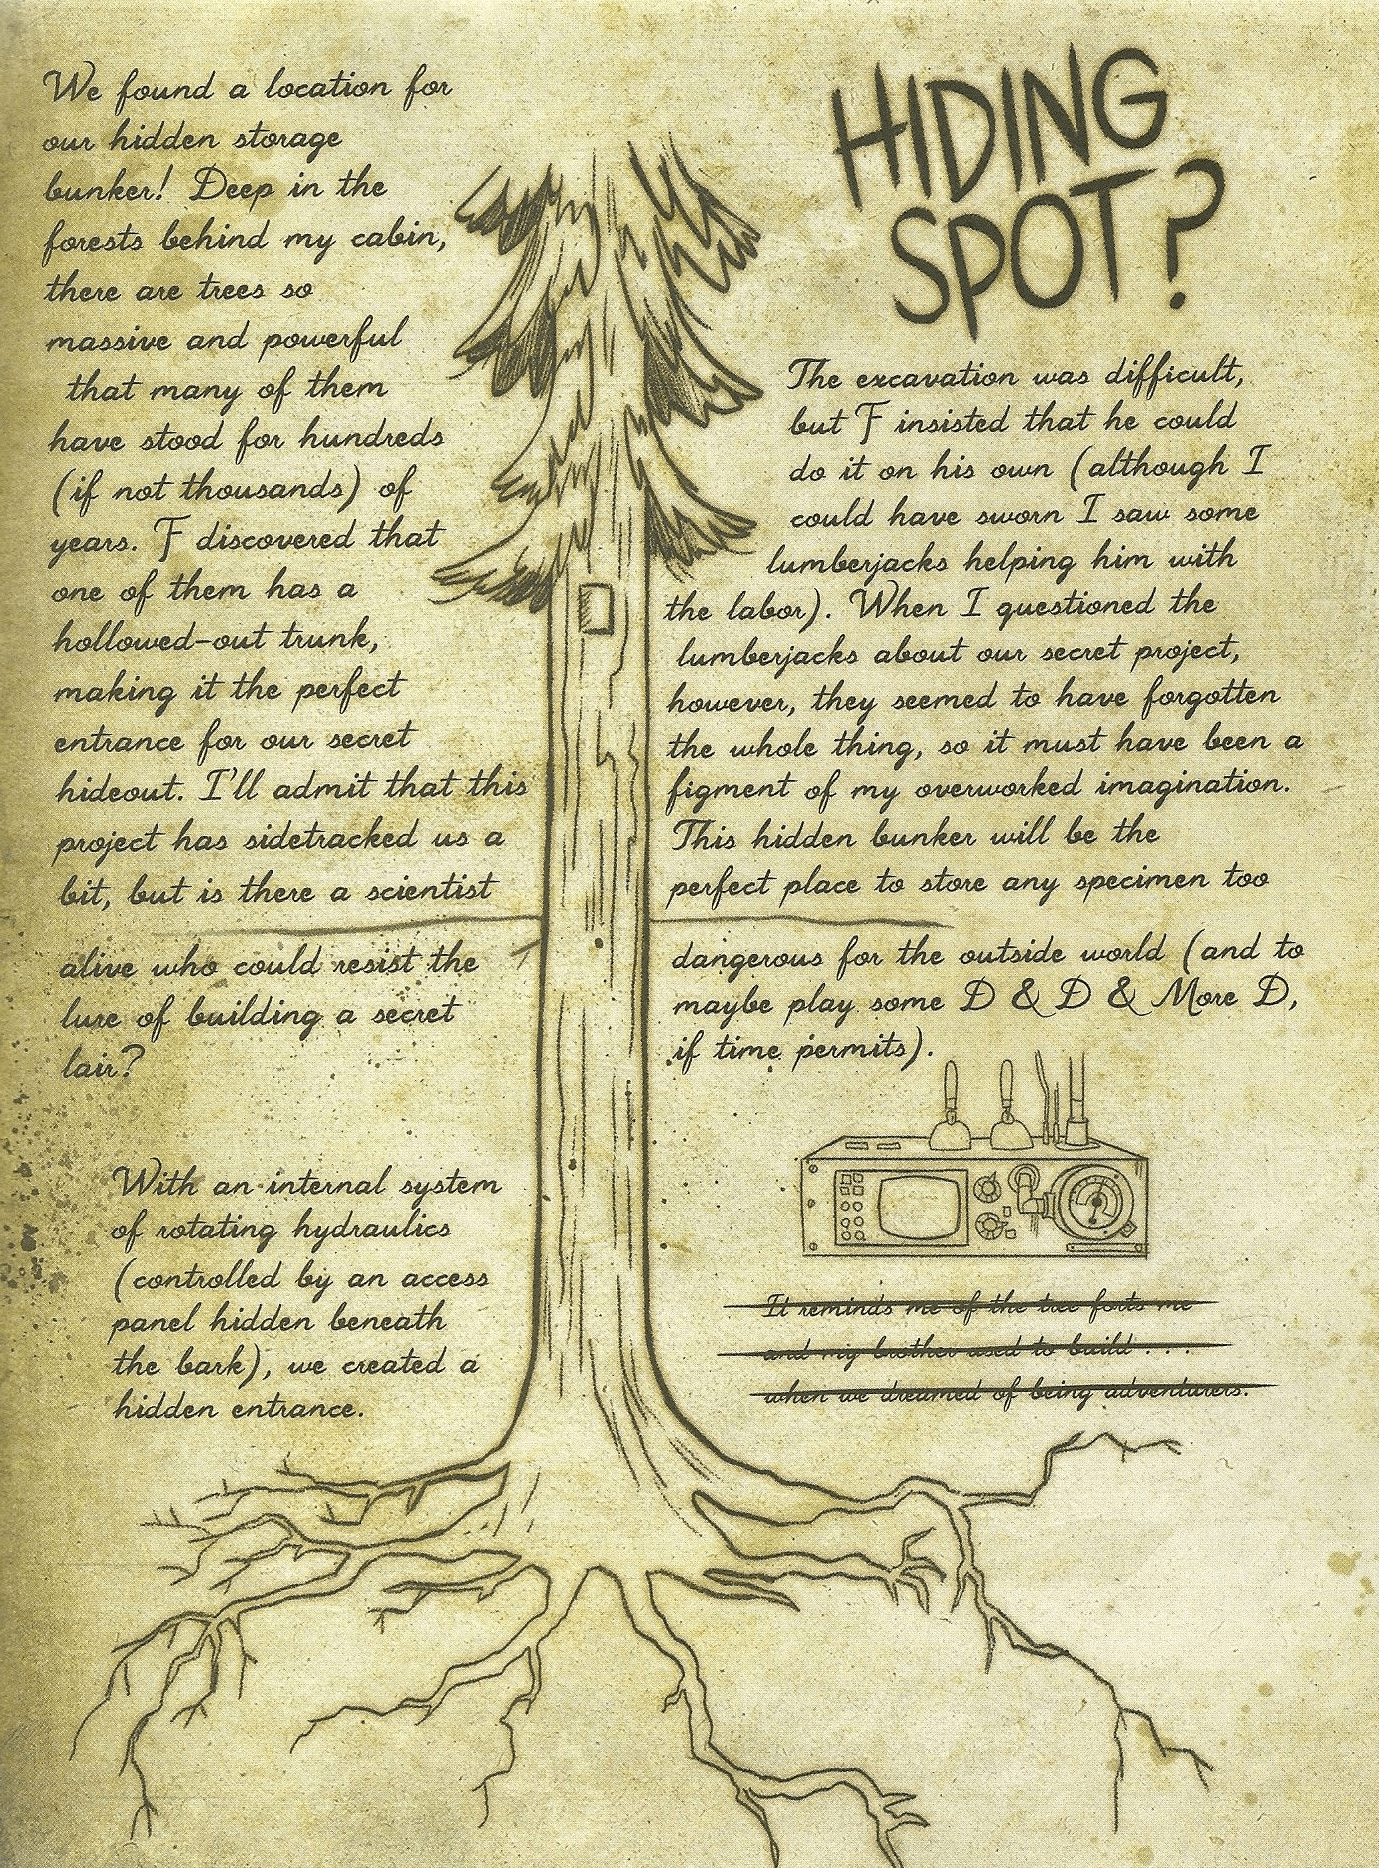 We found a location for
our hidden storage
bunker! Deep in the
forests behind my cabin,
there are trees so
massive and powerful
that many of them
have stood for hundreds
(if not thousands) of
years. F discovered that
one of them has a
hollowed-out trunk,
making it the perfect
entrance for our secret
hideout. I'll admit that this
project has sidetracked us a
bit, but is there a scientist
alive who could resist the
lure of building a secret
lair?
With an internal system
of rotating hydraulics
(controlled by an access
panel hidden beneath
the bark), we created a
hidden entrance.
HIDING
SPOT?
The excavation was difficult,
but F insisted that he could
do it on his own (although I
could have sworn I saw some
lumberjacks helping him with
the labor). When I questioned the
lumberjacks about our secret project,
however, they seemed to have forgotten
the whole thing, so it must have been a
figment of my overworked imagination.
This hidden bunker will be the
perfect place to store any specimen too
dangerous for the outside world (and to
maybe play some D & D & More D,
if time permits).
It reminds me of the tree forts me
and my brother used to build . . .
when we dreamed of being adventurers.